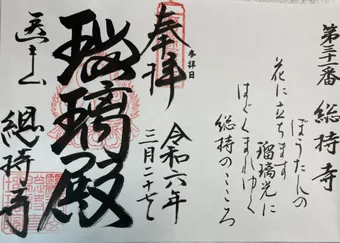 第三十二番 総持寺
ぼうたんの
花に立ちます
瑠璃光に
はぐくまれゆく
総持のこころ
奉拝
参拝日
令和六年
三月二十七日
瑠璃殿
医王山
總持寺